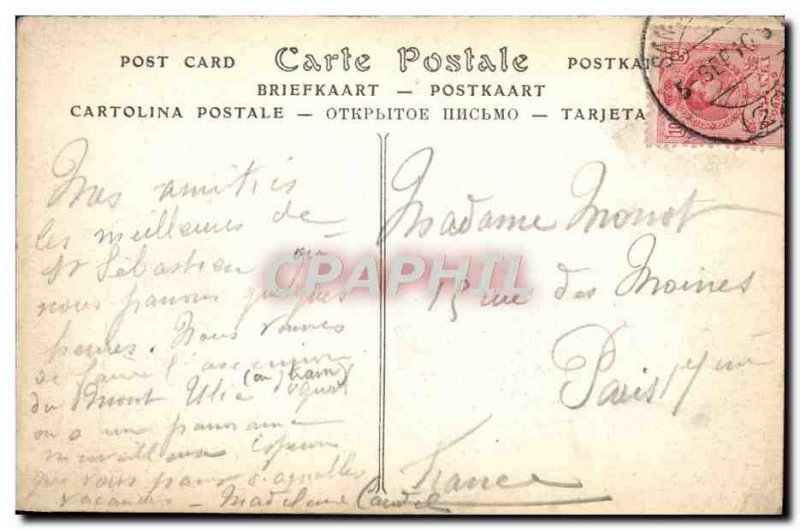 POST CARD Carte Postale POSTKA
BRIEFKAART — POSTKAART
CARTOLINA POSTALE — ОТКРЫТОЕ ПИСЬМО — TARJETA
5 SEP 10
(2
10
CPAPHIL
Nos amitiés
les meilleures de
St Sébastien où
nous passons quelques
heures. Nous venons
de faire l'ascension
du Mont Ulia (en tram)
on a un panorama
merveilleux
que vous passez d'agréables
vacances — Madeleine
Madame Monot
15 rue des Moines
Paris 17ème
France